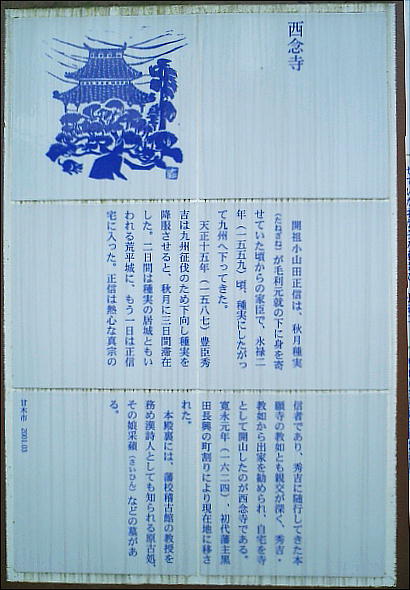 西念寺
開祖小山田正信は、秋月種実
（たねざね）が毛利元就の下に身を寄
せていた頃からの家臣で、永禄二
年（一五五九）頃、種実にしたがっ
て九州へ下ってきた。
天正十五年（一五八七）豊臣秀
吉は九州征伐のため下向し種実を
降服させると、秋月に三日間滞在
した。二日間は種実の居城ともい
われる荒平城に、もう一日は正信
宅に入った。正信は熱心な真宗の
信者であり、秀吉に随行してきた本
願寺の教如とも親交が深く、秀吉・
教如から出家を勧められ、自宅を寺
として開山したのが西念寺である。
寛永元年（一六二四）、初代藩主黒
田長興の町割りにより現在地に移さ
れた。
本殿裏には、藩校稽古館の教授を
務め漢詩人としても知られる原古処、
その娘采蘋（さいひん）などの墓があ
る。
甘木市 2001.03